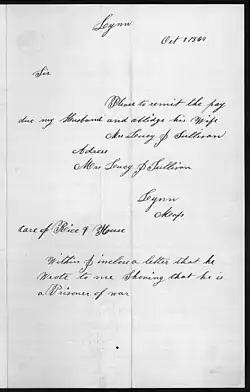 Lynn
Oct 9 1864
Sir
Please to remit the pay
due my Husband and oblidge his Wife
Mrs Lucy J Sullivan
Adress
Mrs Lucy J Sullivan
Lynn
Mass
Care of Rice & House
Within I inclose a letter that he
Wrote to me Showing that he is
a Prisoner of war